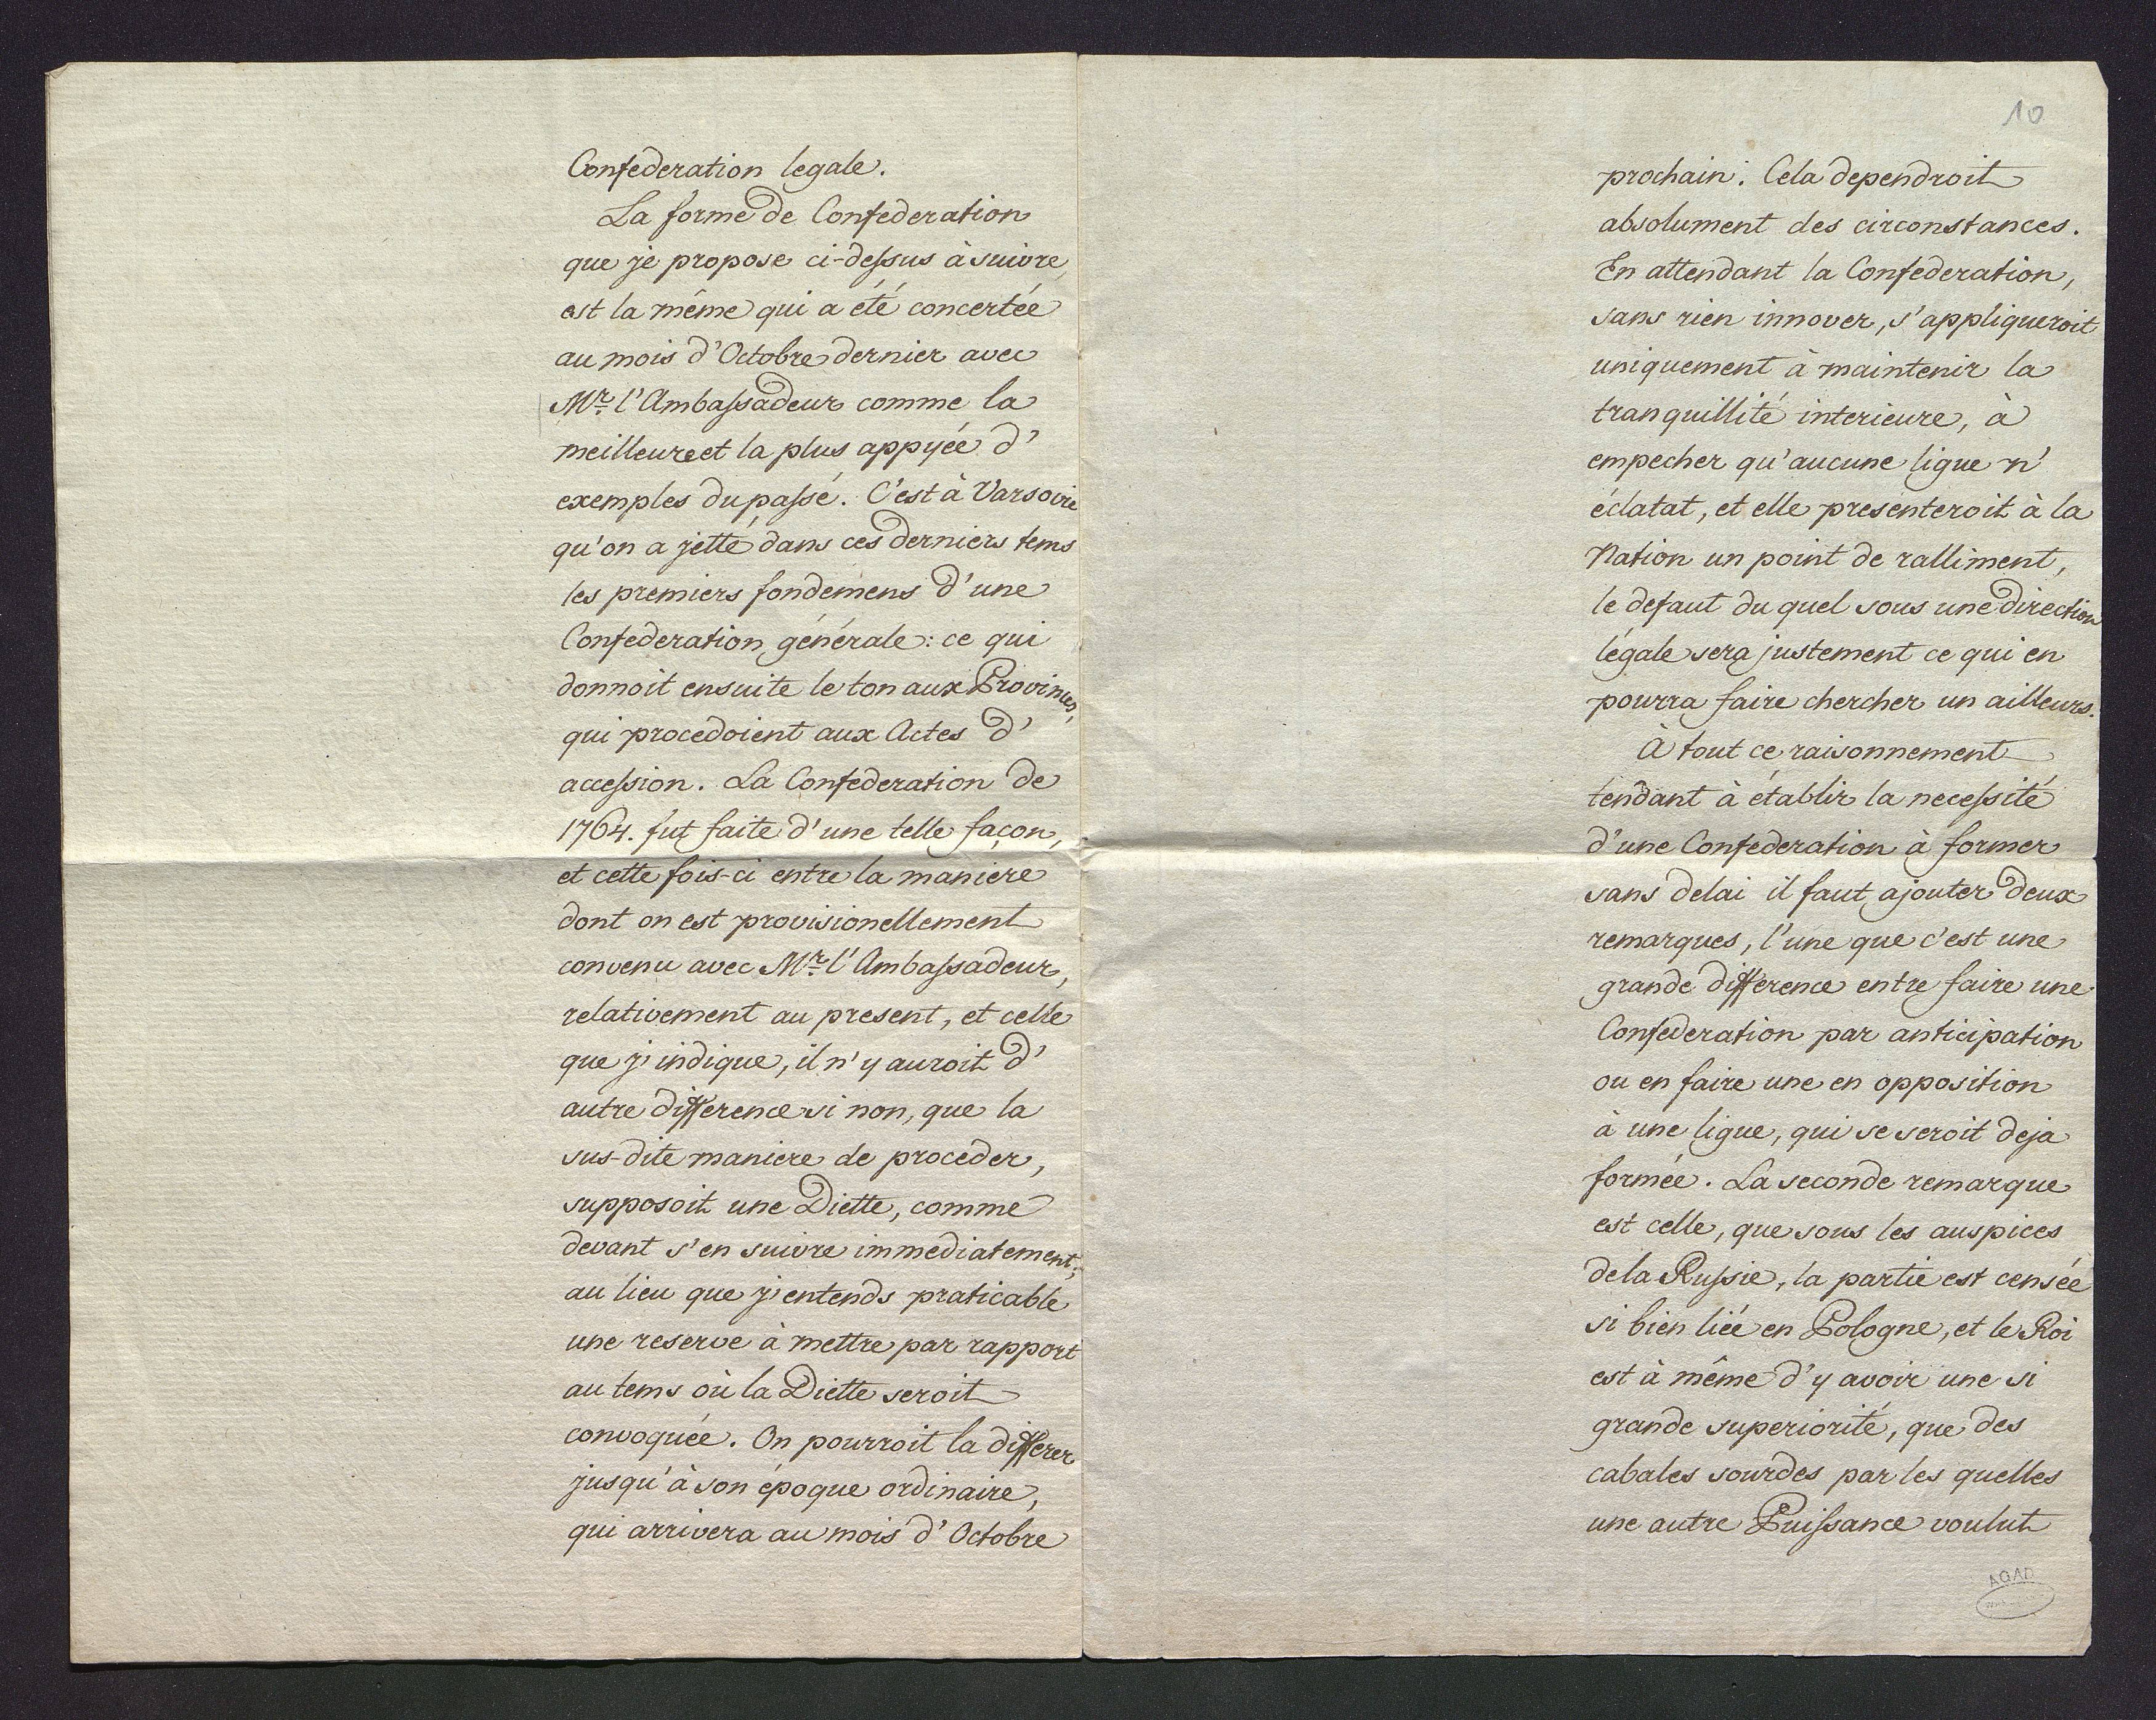 Confederation legale.
La forme de Confederation
que je propose ci-dessus à suivre,
est la même qui a été concertée
au mois d'Octobre dernier avec
Mr. l'Ambassadeur comme la
meilleure et la plus appyée d'
exemples du passé. C'est à Varsovie
qu'on a jetté dans ces derniers tems
les premiers fondemens d'une
Confederation générale: ce qui
donnoit ensuite le ton aux Provinces,
qui procedoient aux Actes d'
accession. La Confederation de
1764. fut faite d'une telle façon,
et cette fois-ci entre la maniere
dont on est provisionellement
convenu avec Mr. l'Ambassadeur,
relativement au present, et celle
que j'indique, il n'y auroit d'
autre difference si non, que la
sus-dite maniere de proceder,
supposoit une Diette, comme
devant s'en suivre immediatement;
au lieu que j'entends praticable
une reserve à mettre par rapport
au tems où la Diette seroit
convoquée. On pourroit la differer
jusqu'à son époque ordinaire,
qui arrivera au mois d'Octobre
10
prochain. Cela dependroit
absolument des circonstances.
En attendant la Confederation,
sans rien innover, s'appliqueroit
uniquement à maintenir la
tranquillité interieure, à
empecher qu'aucune ligue n'
éclatat, et elle presenteroit à la
Nation un point de ralliment,
le defaut du quel sous une direction
légale sera justement ce qui en
pourra faire chercher un ailleurs.
À tout ce raisonnement
tendant à établir la necessité
d'une Confederation à former
sans delai il faut ajouter deux
remarques, l'une que c'est une
grande difference entre faire une
Confederation par anticipation
ou en faire une en opposition
à une ligue, qui se seroit deja
formée. La seconde remarque
est celle, que sous les auspices
de la Russie, la partie est censée
si bien liée en Pologne, et le Roi
est à même d'y avoir une si
grande superiorité, que des
cabales sourdes par les quelles
une autre Puissance voulut
AGAD